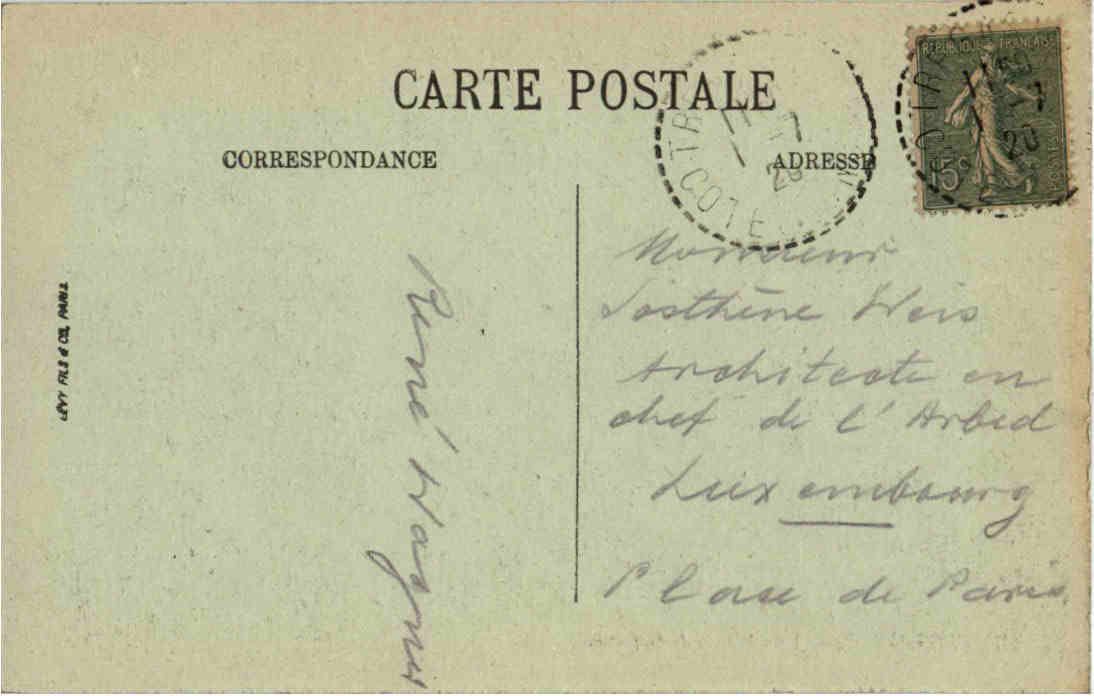 CARTE POSTALE
CORRESPONDANCE
ADRESSE
RÉPUBLIQUE FRANÇAISE
15c
POSTES
11
7
20
Monsieur
Sosthène Weis
Architecte en
chef de l'Arbed
Luxembourg
Place de Paris
René Wagner
LÉVY FILS & CO, PARIS